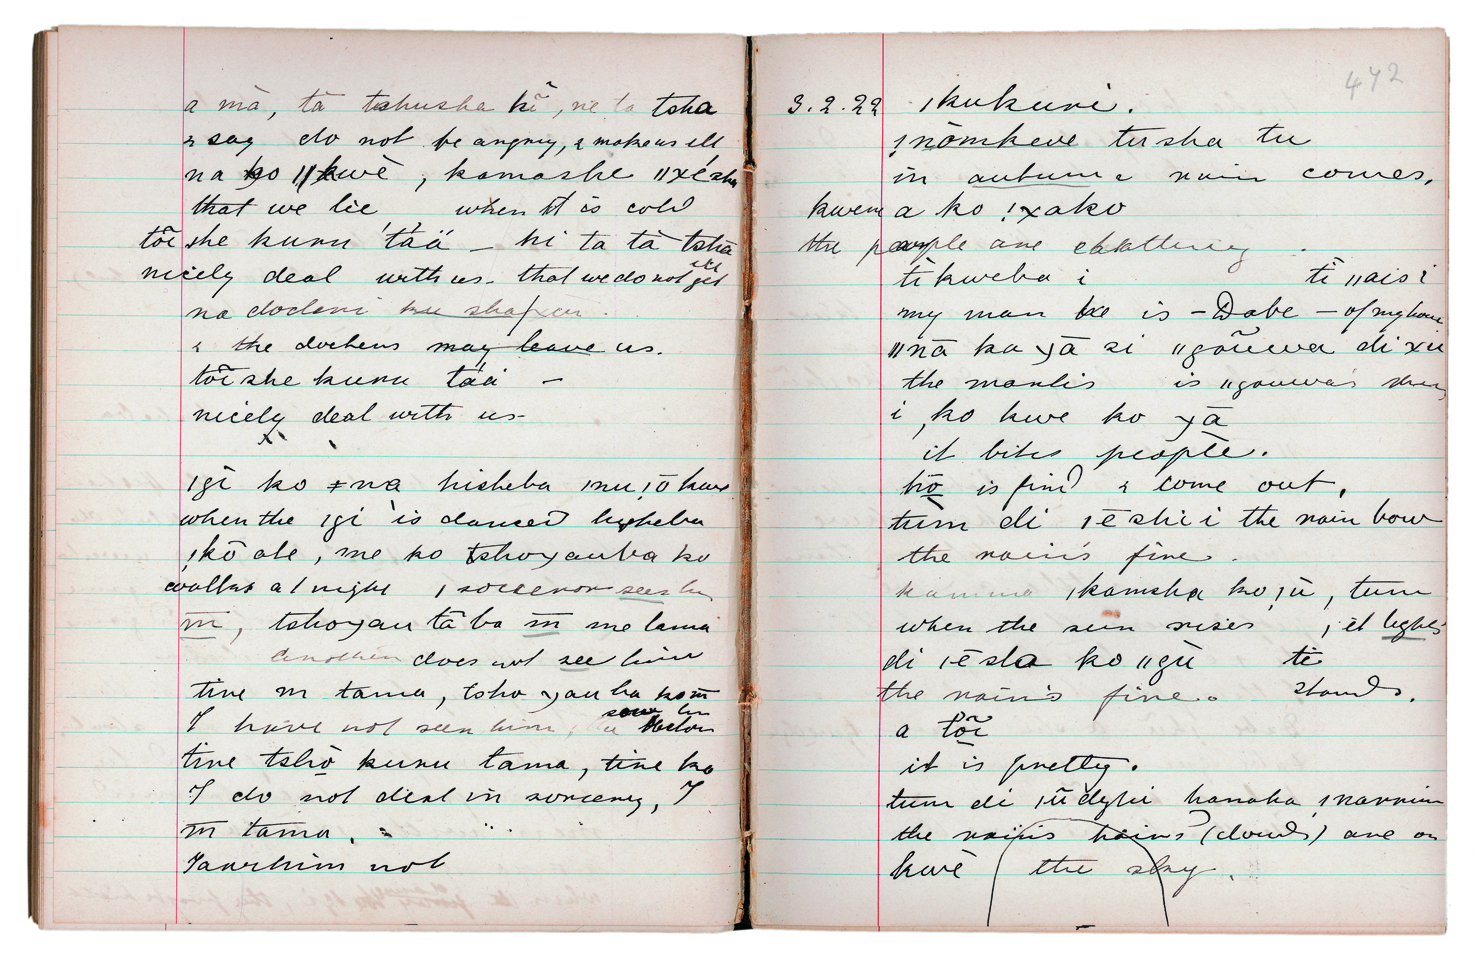 a mā, tā tshusha kĩ, ne ta tsha
& say do not be angry, & make us ill
na ko ǁkwè, kamashe ǁxé sha
that we lie when it is cold
tõi she kuru táá – hi ta tà tsha
nicely deal with us. that we do not get ill
na doctani ku sha
& the dochens may leave us.
tõi she kuru táá –
nicely deal with us.
ǀgī ko ǂna hisheba ǀnu ǀō kwe
when the ǀgi is danced
ǀkō abe, me ko tshoɣauba ko
walks at night, sorceror sees him
m̄, tshoɣau tā ba m̄ me tama
another does not see him
tire m tama, tshoɣau ba ko m̄
I have not seen him,
tire tshō kuru tama, tire ko
I do not deal in sorcery, I
m̄ tama.
saw him not
472
3.2.22 ǀkukuri.
ǀnōmkeve tusha tu
in autumn rain comes.
kwena ko ǃxako
the people are chattering.
ti kweba i ti ǁais i
my man he is – Dabe – of my home
ǁnā ka ɣā si ǁgõuwa di xu
the mantis is ǁgouwa's thing
i, ko kwe ko ɣā
it bites people.
hō is find & come out.
tum di ǀē shi i the rain bow
the rain's fire.
kamma ǀkamsha ko ǀū, tum
when the sun rises, it lights
di ǀē sha ko ǁgū te
the rain's fire. stands.
a tõi
it is pretty.
tum di ǀū dɣi hanaka ǀnarrim
the rain's hairs (clouds) are on
kwè the sky.